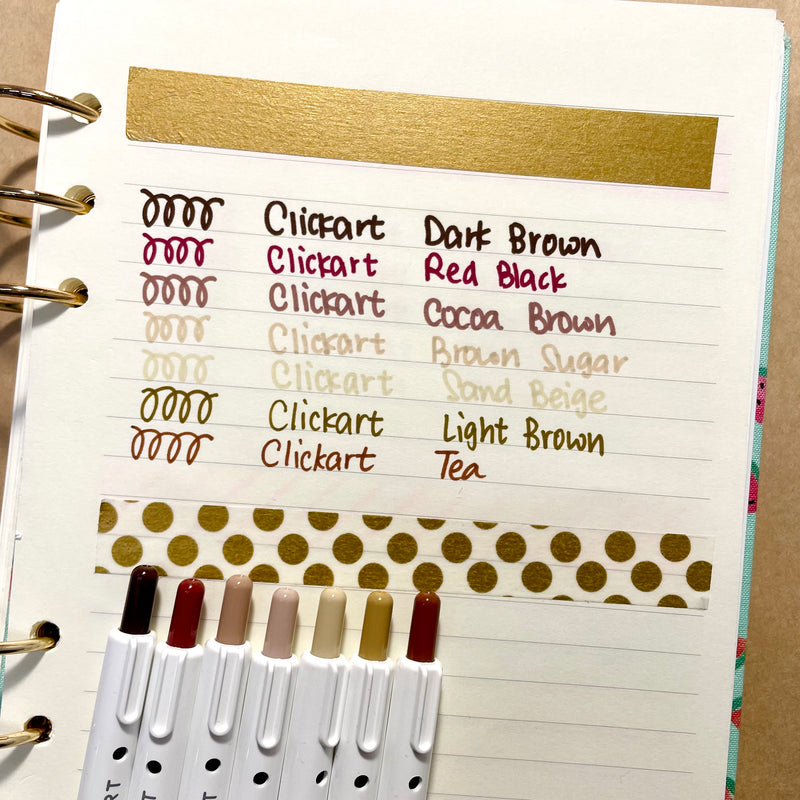 Clickart Dark Brown
Clickart Red Black
Clickart Cocoa Brown
Clickart Brown Sugar
Clickart Sand Beige
Clickart Light Brown
Clickart Tea
RT